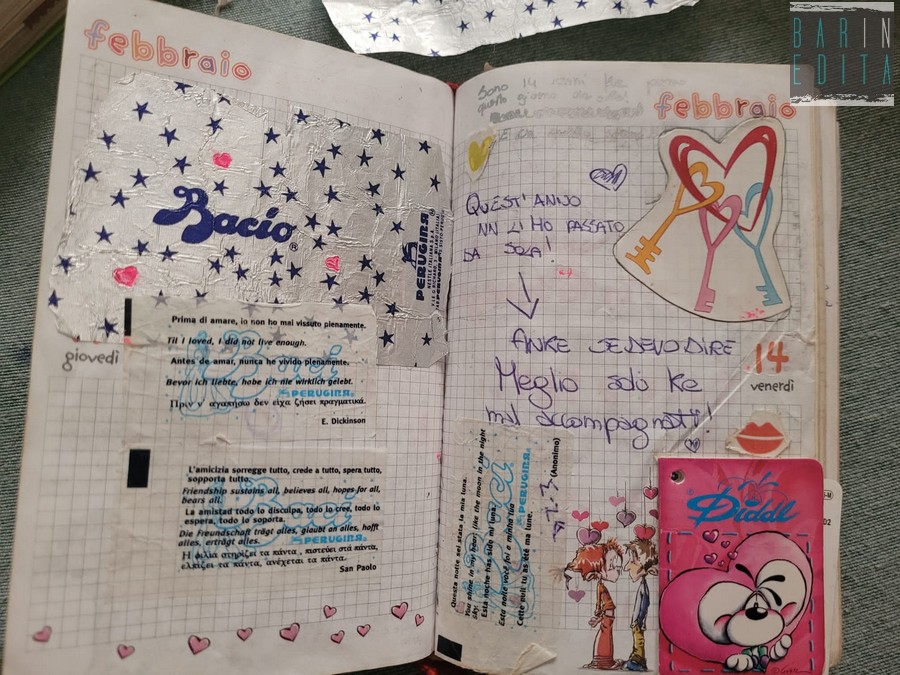 febbraio
Bacio®
PERUGINA®
giovedì
Prima di amare, io non ho mai vissuto pienamente.
Til I loved, I did not live enough.
Antes de amar, nunca he vivido plenamente.
Bevor ich liebte, habe ich nie wirklich gelebt.
Πριν ν' αγαπήσω δεν είχα ζήσει πραγματικά.
PERUGINA®
E. Dickinson
L'amicizia sorregge tutto, crede a tutto, spera tutto,
sopporta tutto.
Friendship sustains all, believes all, hopes for all,
bears all.
La amistad todo lo disculpa, todo lo cree, todo lo
espera, todo lo soporta.
Die Freundschaft trägt alles, glaubt an alles, hofft
alles, erträgt alles.
PERUGINA®
Η φιλία στηρίζει τα πάντα, πιστεύει στα πάντα,
ελπίζει τα πάντα, ανέχεται τα πάντα.
San Paolo
febbraio
QUEST'ANNO
NN L'HO PASSATO
DA SOLA!
ANKE SE DEVO DIRE
Meglio soli ke
mal accompagnati!
14
venerdì
Questa notte sei stata la mia luna.
You shine in my heart like the moon in the night
sky.
Esta noche has sido mi luna.
Esta noite você foi a minha lua.
Cette nuit tu as été ma lune.
(Anonimo)
PERUGINA®
Diddl
02
BARIN
EDITA